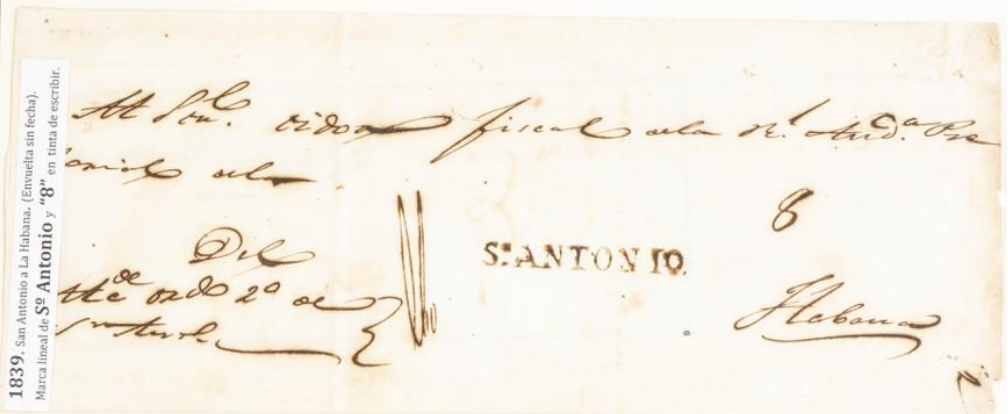 1839. San Antonio a La Habana. (Envuelta sin fecha).
Marca lineal de Sº Antonio y "8" en tinta de escribir.
Al Sor. oidor fiscal de la Rl. Auda. Pre
torial de la
Del
Alcde ordo 2º de
Sn
8
Sn. ANTONIO.
Habana